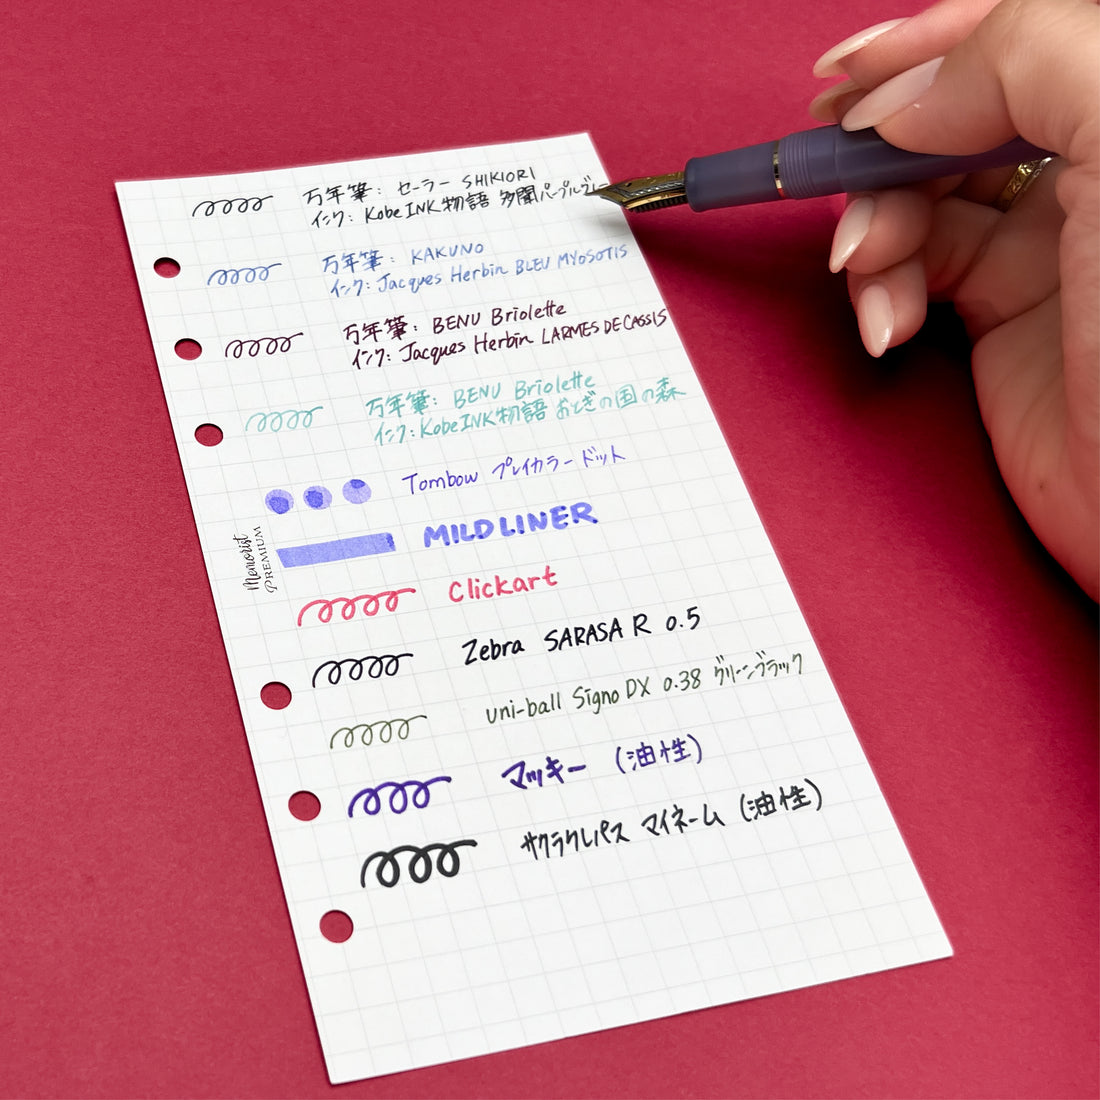 万年筆: セーラー SHIKIORI
インク: Kobe INK物語 多聞パープルグレー
万年筆: KAKUNO
インク: Jacques Herbin BLEU MYOSOTIS
万年筆: BENU Briolette
インク: Jacques Herbin LARMES DE CASSIS
万年筆: BENU Briolette
インク: Kobe INK物語 おとぎの国の森
Tombow プレイカラードット
MILDLINER
Memorist
PREMIUM
Clickart
Zebra SARASA R 0.5
uni-ball Signo DX 0.38 グリーンブラック
マッキー (油性)
サクラクレパス マイネーム (油性)